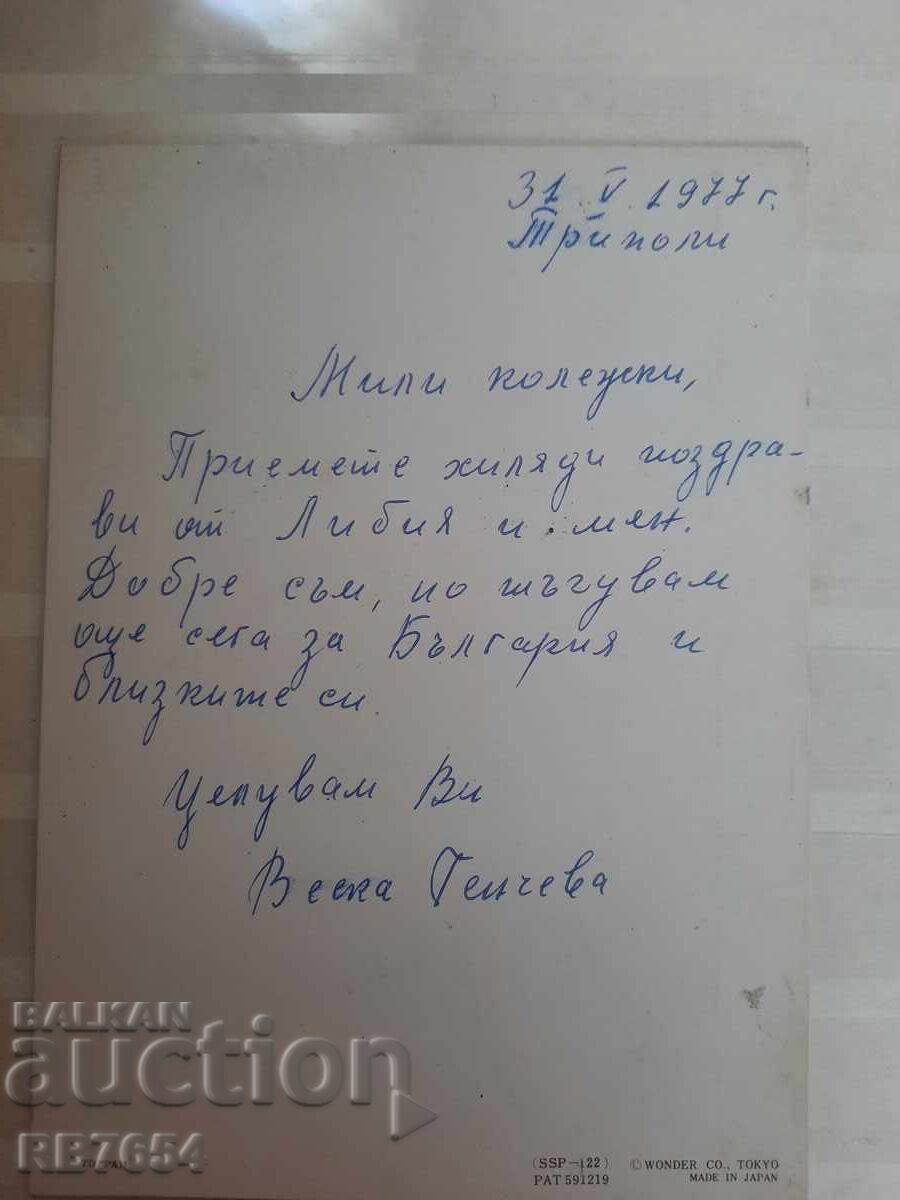 31. V. 1977 г.
Триполи
Мили колежки,
Приемете хиляди поздра-
ви от Либия и мен.
Добре съм, но тъгувам
още сега за България и
близките си.
Целувам Ви
Веска Генчева
BALKAN
auction
RB7654
(SSP-122) © WONDER CO., TOKYO
PAT 591219 MADE IN JAPAN